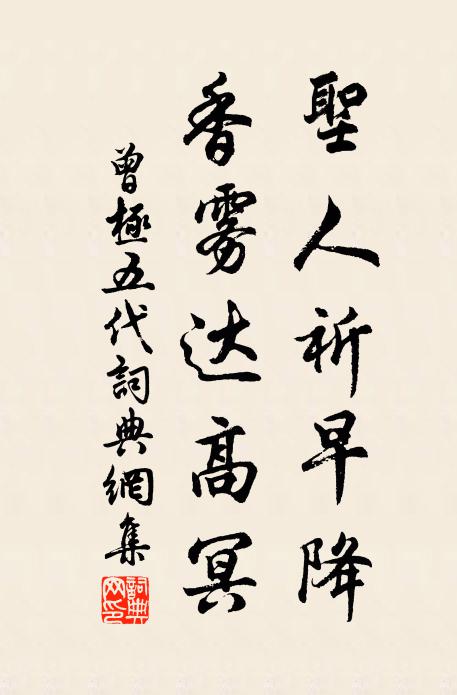 聖人祈早降
香雾达高冥
曾極五代詞典網集
詞典网印